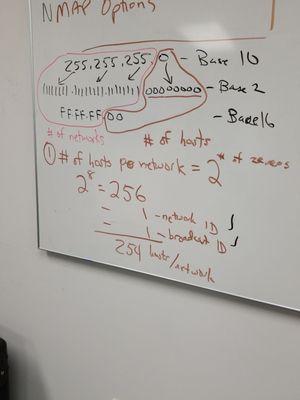 NMAP Options
255.255.255.0 - Base 10
11111111 11111111 11111111 00000000 - Base 2
FF.FF.FF.00 - Base 16
# of networks # of hosts
① # of hosts per network = 2^# of zeroes
2^8 = 256
- 1 - network ID
- 1 - broadcast ID
254 hosts/network